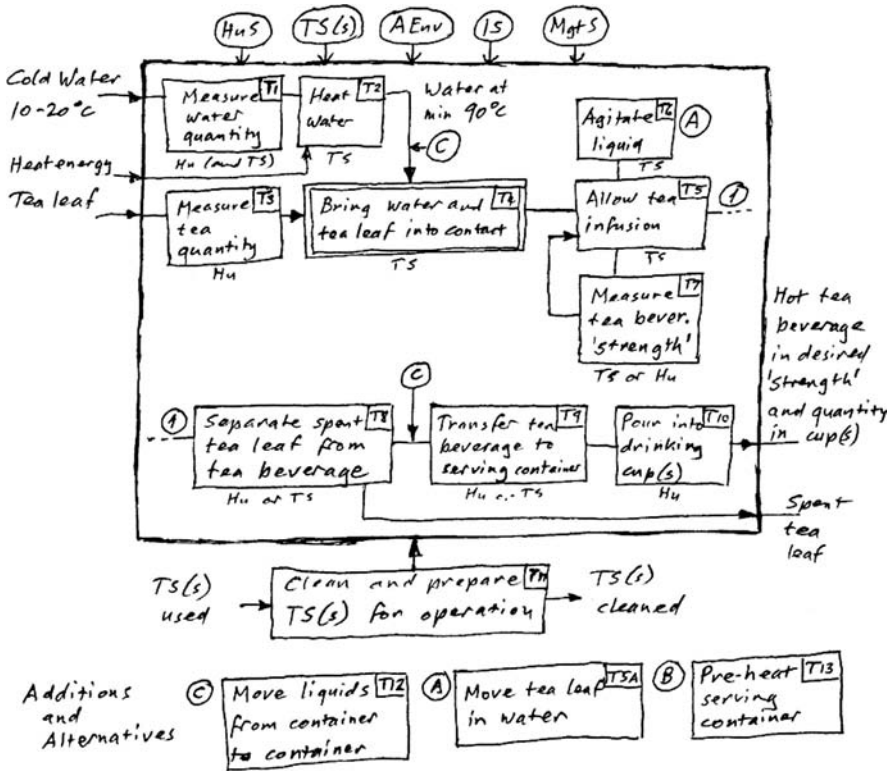 HuS
TS(s)
AEnv
IS
MgtS
Cold Water
10-20°C
Measure
water
quantity
T1
Hu (and TS)
Heat
water
T2
TS
Water at
min 90°C
C
Agitate
liquid
T6
A
TS
Heat energy
Tea leaf
Measure
tea
quantity
T3
Hu
Bring water and
tea leaf into contact
T4
TS
Allow tea
infusion
T5
1
TS
Measure
tea bever.
'strength'
T7
TS or Hu
Hot tea
beverage
in desired
'strength'
and quantity
in cup(s)
1
Separate spent
tea leaf from
tea beverage
T8
Hu or TS
C
Transfer tea
beverage to
serving container
T9
Hu or TS
Pour into
drinking
cup(s)
T10
Hu
Spent
tea
leaf
TS(s)
used
Clean and prepare
TS(s) for operation
T11
TS(s)
cleaned
Additions
and
Alternatives
C
Move liquids
from container
to container
T12
A
Move tea leaf
in water
T5A
B
Pre-heat
serving
container
T13